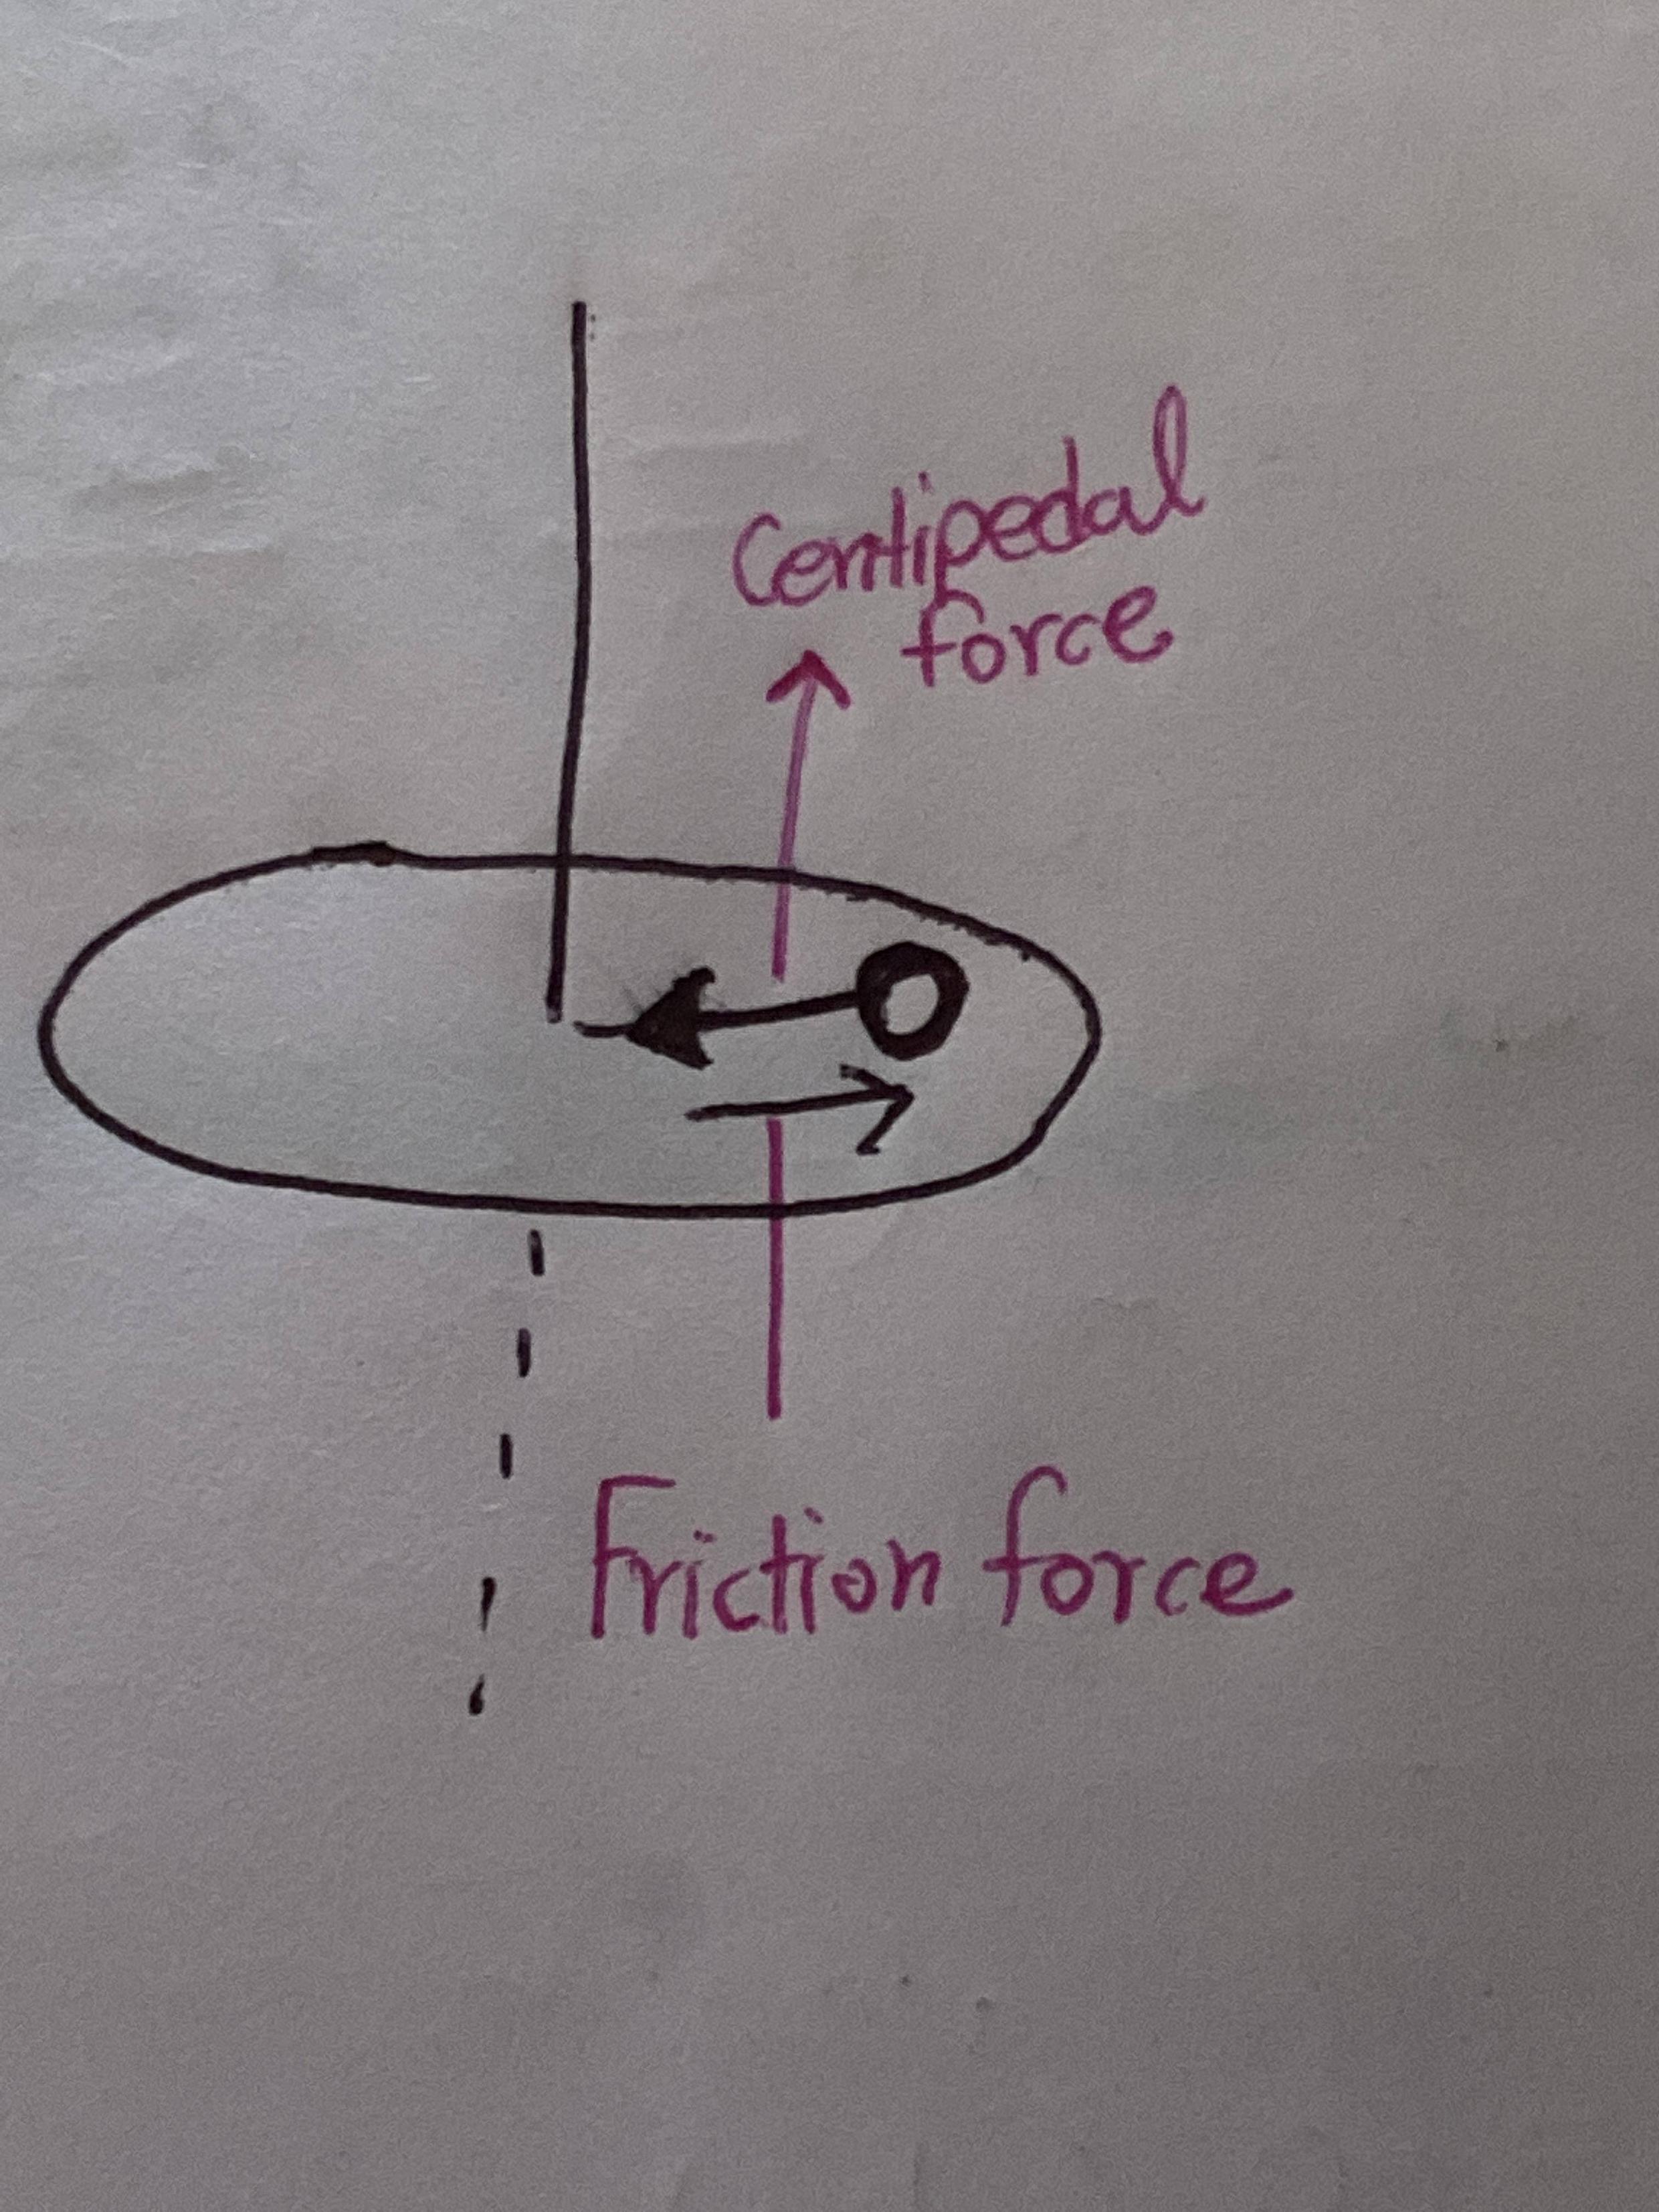 Centipedal
force
Friction force